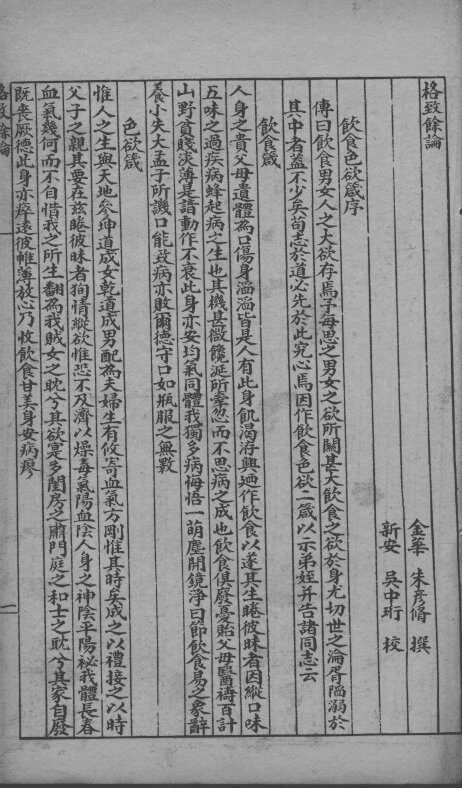 格致餘論
金華 朱彥脩 撰
新安 吳中珩 校
飲食色欲箴序
傳曰飲食男女人之大欲存焉予每思之男女之欲所關甚大飲食之欲於身尤切世之淪胥陷溺於
其中者蓋不少矣苟志於道必先於此究心焉因作飲食色欲二箴以示弟姪并告諸同志云
飲食箴
人身之貴父母遺體為口傷身滔滔皆是人有此身飢渴洊興迺作飲食以遂其生睠彼昧者因縱口味
五味之過疾病蜂起病之生也其機甚微饞涎所牽忽而不思病之成也飲食俱廢憂貽父母醫禱百計
山野貧賤淡薄是諳動作不衰此身亦安均氣同體我獨多病悔悟一萌塵開鏡淨曰節飲食易之象辭
養小失大孟子所譏口能致病亦敗爾德守口如瓶服之無斁
色欲箴
惟人之生與天地參坤道成女乾道成男配為夫婦生育攸寄血氣方剛惟其時矣成之以禮接之以時
父子之親其要在茲睠彼昧者狥情縱欲惟恐不及濟以燥毒氣陽血陰人身之神陰平陽祕我體長春
血氣幾何而不自惜我之所生翻為我賊女之耽兮其欲寔多閨房之肅門庭之和士之耽兮其家自廢
既喪厥德此身亦瘁遠彼帷薄放心乃收飲食甘美身安病瘳
格致餘論
一